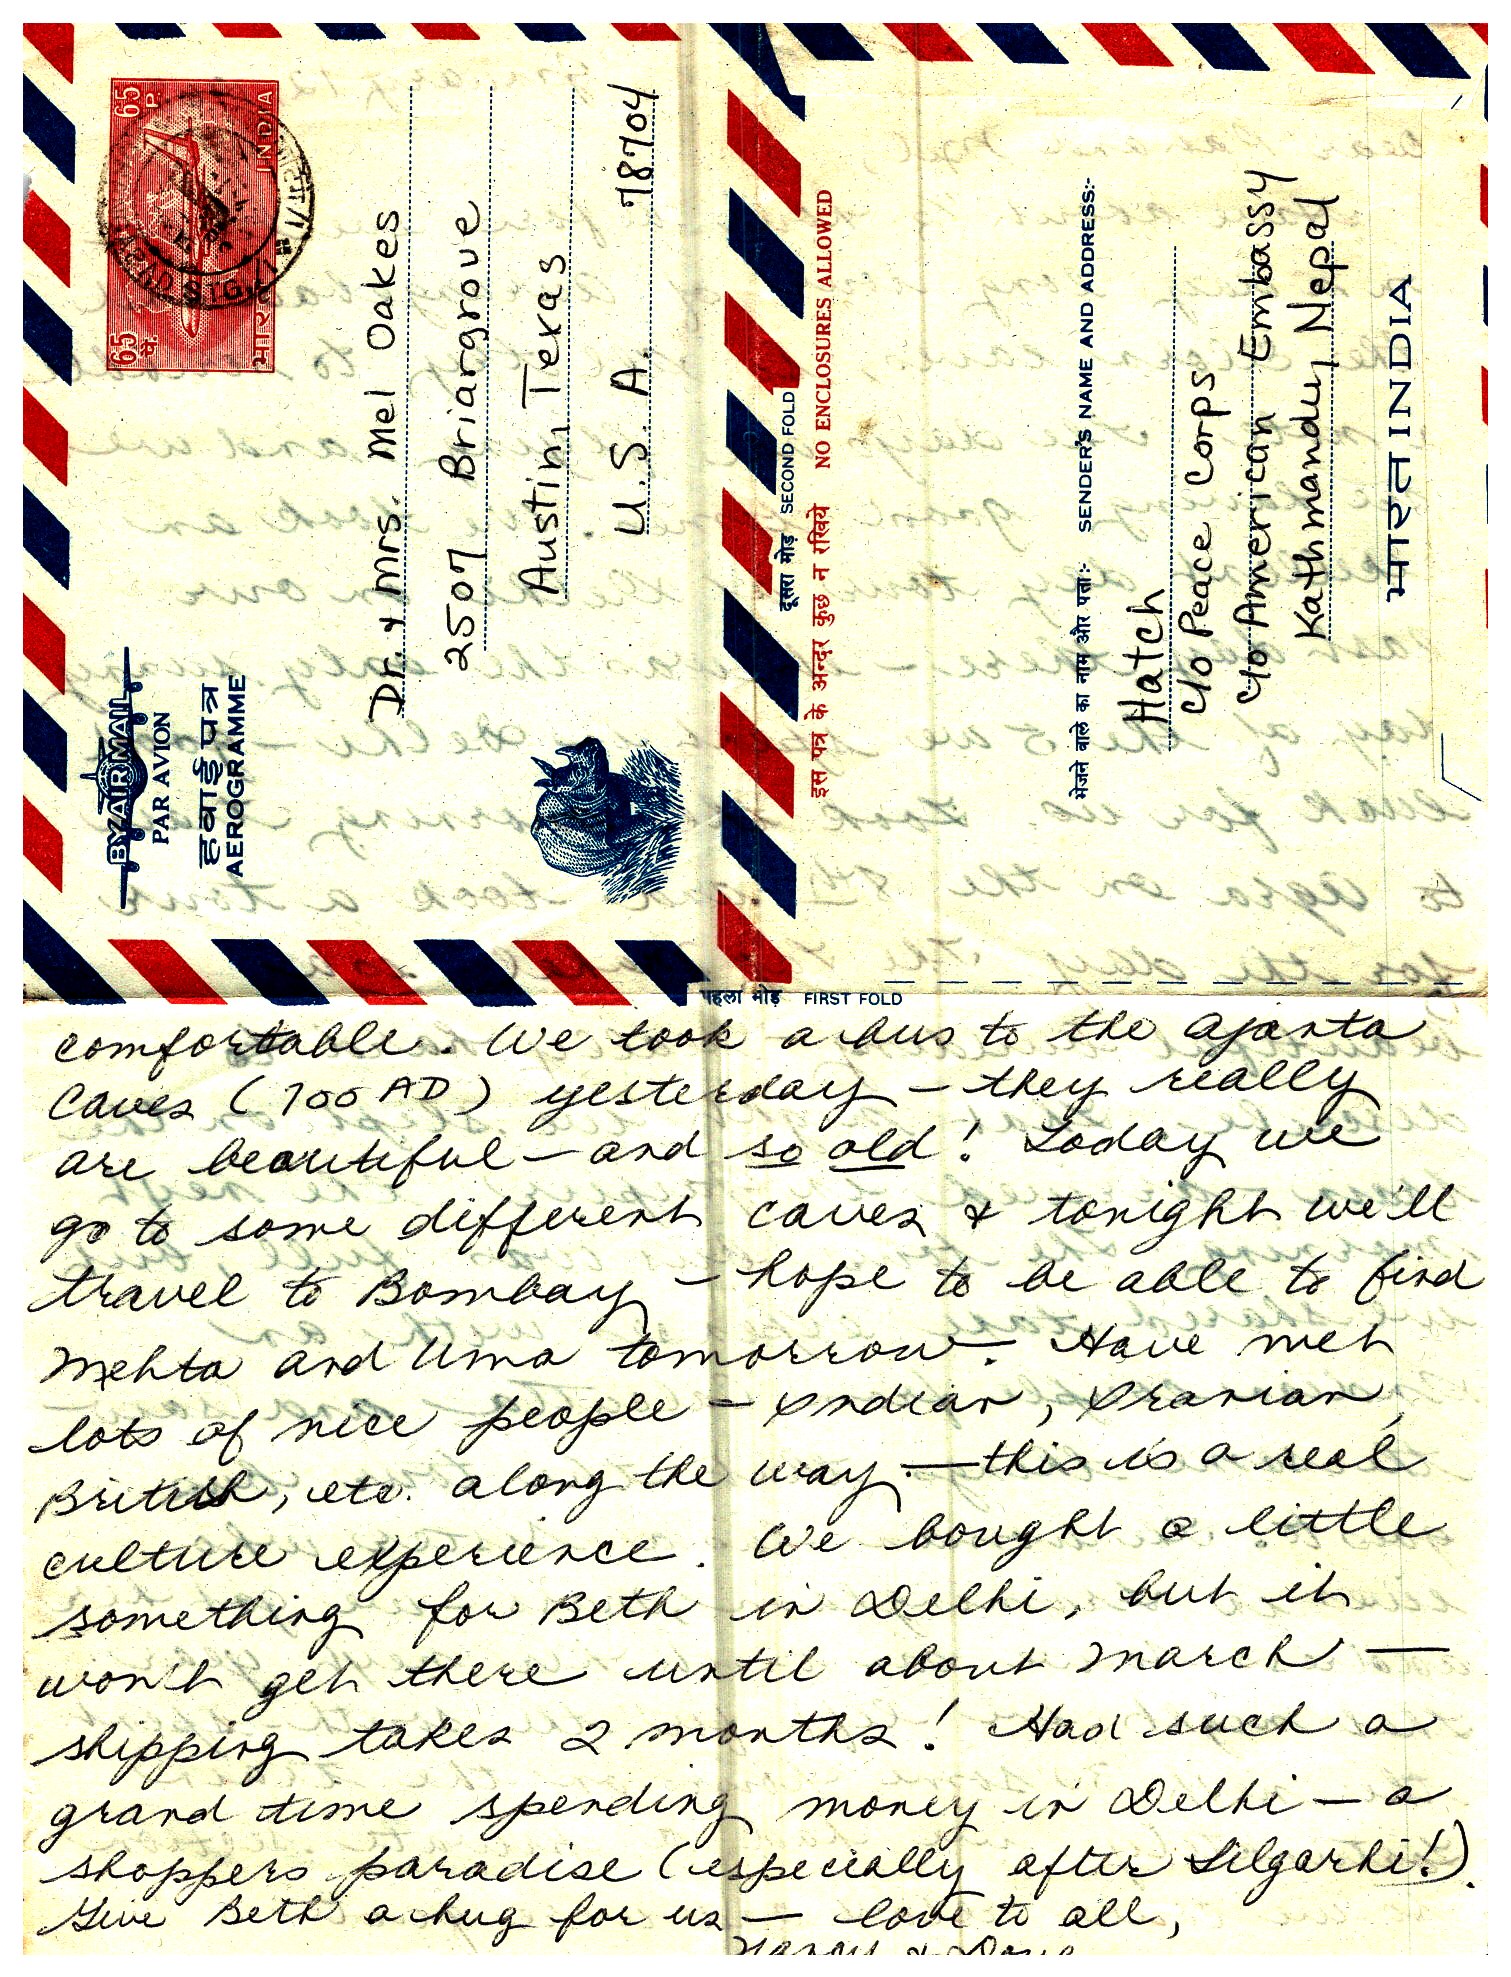 65 P. INDIA
65 प. भारत
BY AIR MAIL
PAR AVION
हवाई पत्र
AEROGRAMME
Dr. & Mrs. Mel Oakes
2507 Briargrove
Austin, Texas
U.S.A. 78704
दूसरा मोड़ SECOND FOLD
इस पत्र के अन्दर कुछ न रखिये NO ENCLOSURES ALLOWED
भेजने वाले का नाम और पता:- SENDER'S NAME AND ADDRESS:-
Hatch
c/o Peace Corps
c/o American Embassy
Kathmandu, Nepal
भारत INDIA
पहला मोड़ FIRST FOLD
comfortable. We took a bus to the Ajanta
Caves (700 AD) yesterday – they really
are beautiful – and so old! Today we
go to some different caves & tonight we'll
travel to Bombay – hope to be able to find
Mehta and Uma tomorrow. Have met
lots of nice people – Indian, Iranian,
British, etc. along the way. – this is a real
culture experience. We bought a little
something for Beth in Delhi, but it
won't get there until about March –
shipping takes 2 months! Had such a
grand time spending money in Delhi – a
shoppers paradise (especially after Silgarhi!).
Give Beth a hug for us – love to all,